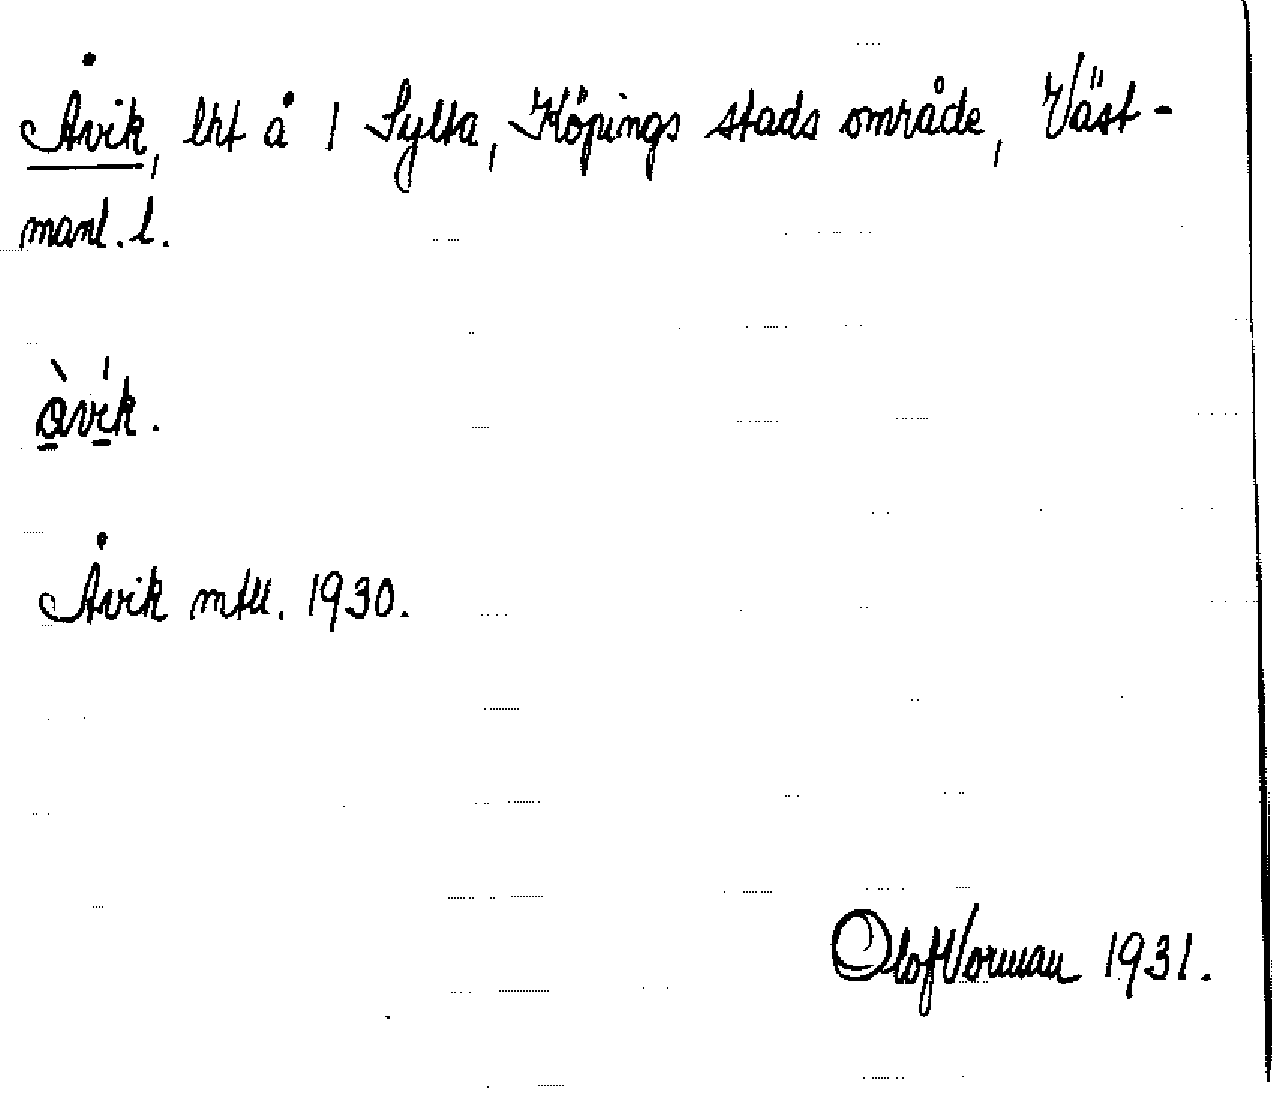 Åvik, lht å 1 Sylta, Köpings stads område, Väst-
manl. l.
å̀vík.
Åvik mtll. 1930.
Olof Vorman 1931.